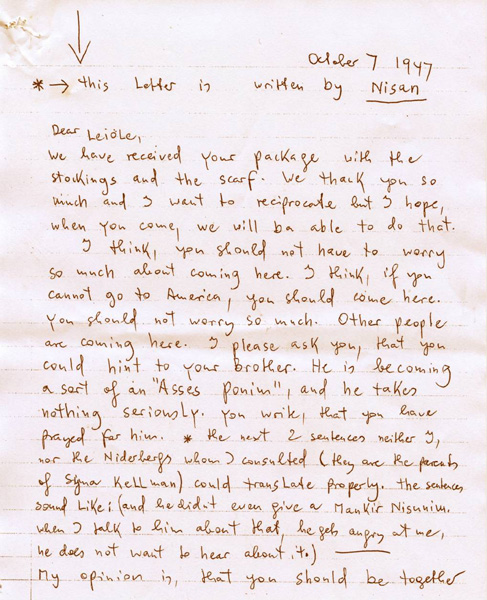 October 7 1947
* → this Letter is written by Nisan
Dear Leidle,
We have received your package with the
stockings and the scarf. We thack you so
much and I want to reciprocate but I hope,
when you come, we will ba able to do that.
I think, you should not have to worry
so much about coming here. I think, if you
cannot go to America, you should come here.
You should not worry so much. Other people
are coming here. I please ask you, that you
could hint to your brother. He is becoming
a sort of an "Asses ponim", and he takes
nothing seriously. You write, that you have
prayed for him. * the next 2 sentences neither I,
nor the Niderbergs whom I consulted (they are the parents
of Syna Kellman) could translate properly. The sentences
sound like: (and he didn't even give a Mankir Nisunim.
when I talk to him about that, he gets angry at me,
he does not want to hear about it.)
My opinion is, that you should be together